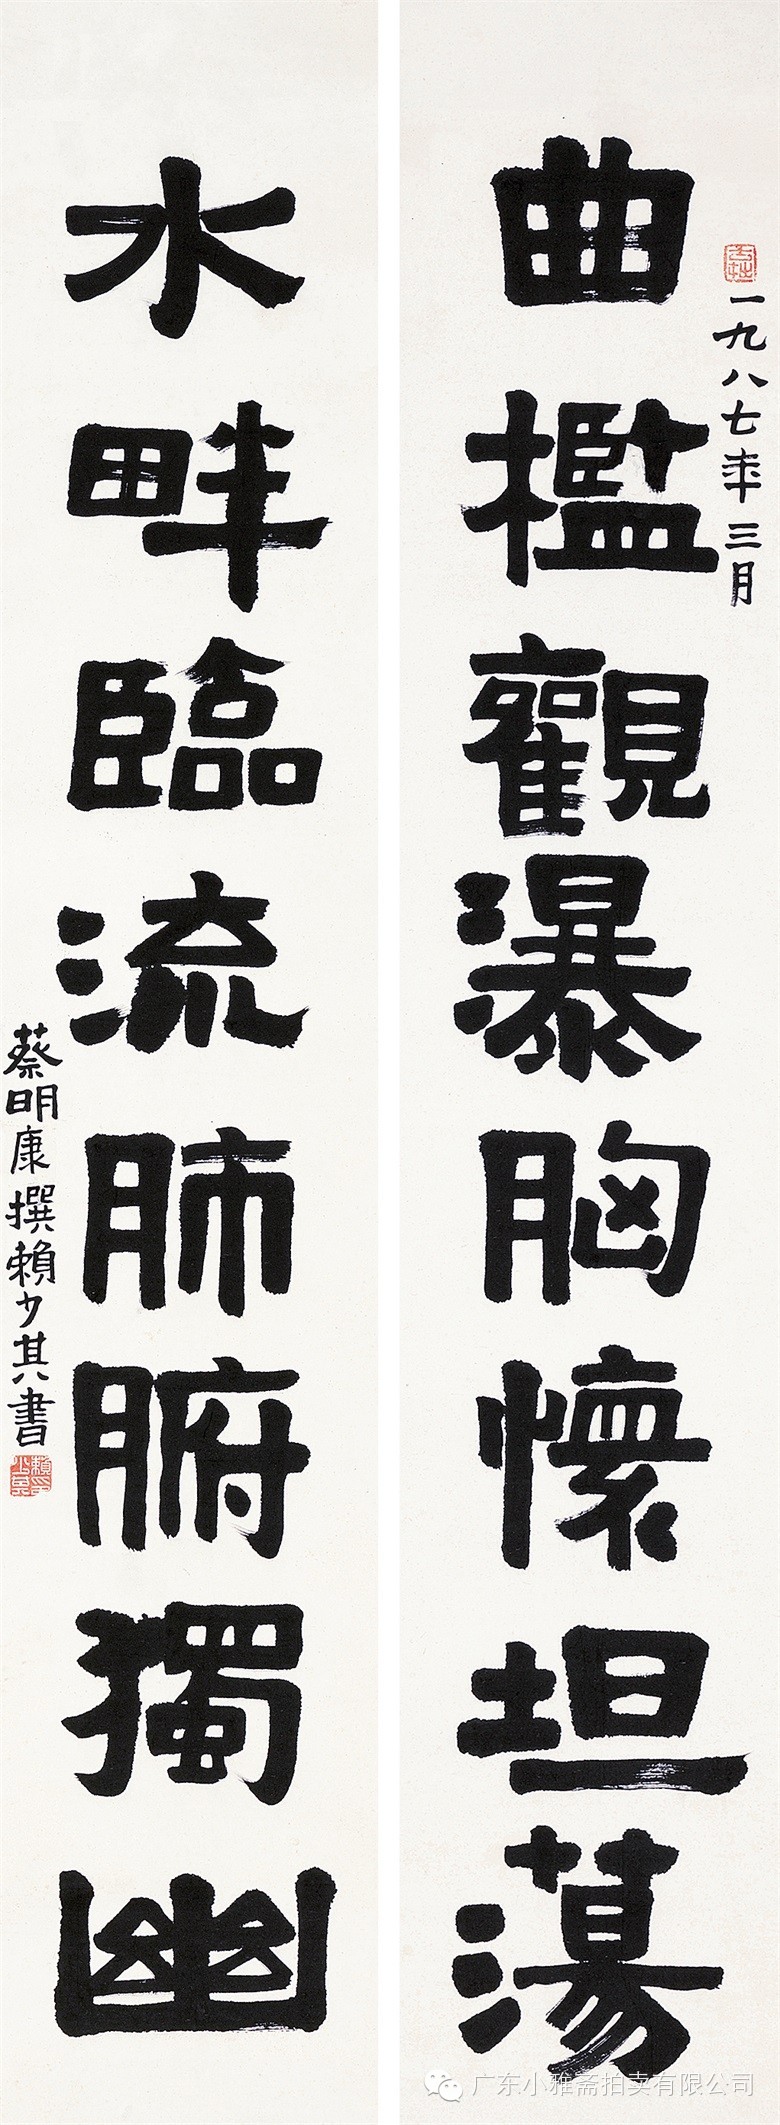 一九八七年三月
曲檻觀瀑胸懷坦蕩
水畔臨流肺腑獨幽
蔡明康撰賴少其書
广东小雅斋拍卖有限公司